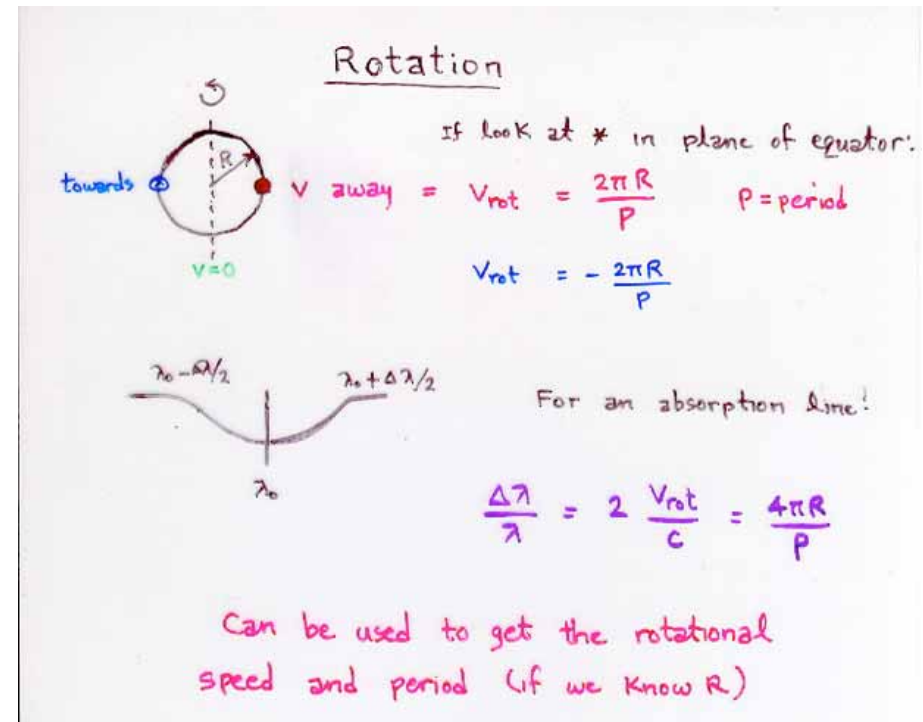 Rotation
If look at * in plane of equator:
R
towards
V away = Vrot = 2πR/P P = period
V=0
Vrot = - 2πR/P
λ₀ - Δλ/2 λ₀ + Δλ/2
For an absorption line:
λ₀
Δλ/λ = 2 Vrot/c = 4πR/P
Can be used to get the rotational
speed and period (if we know R)